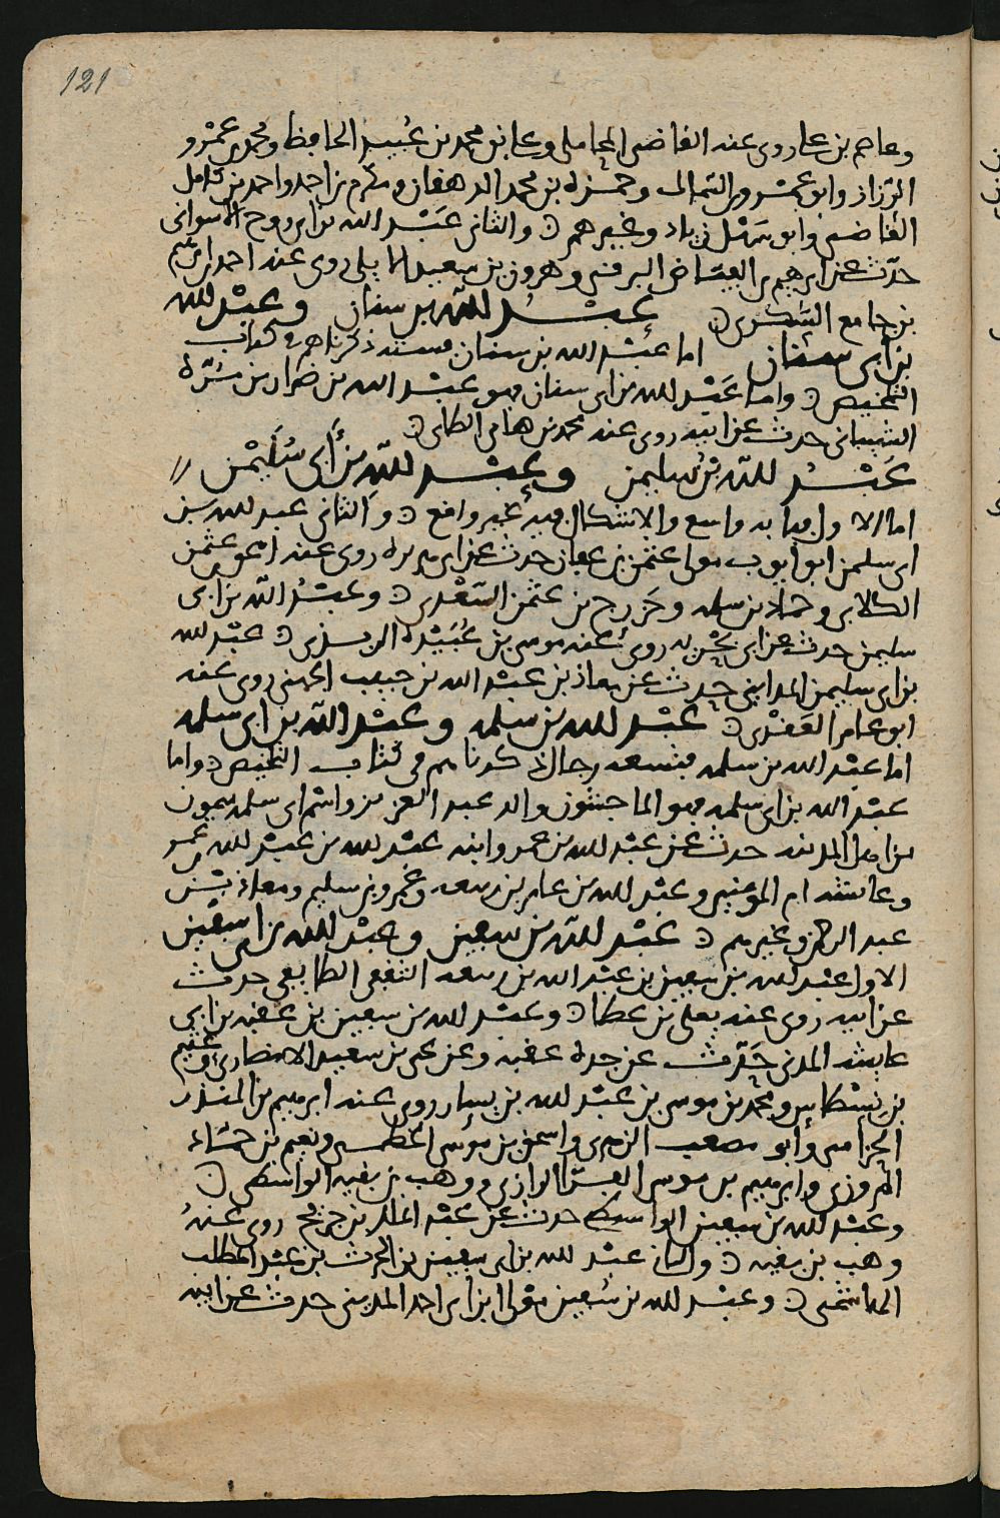 121
وعاصم بن علي روى عنه القاضي المحاملي وعلي بن محمد بن عُبيد الحافظ ومحمد بن عمْرو
الرزاز وابو عمْرو بن السماك وحمزة بن محمد الدهقان ومكرم بن احمد واحمد بن كامل
القاضي وابو سَهْل بن زياد وغيرهم والثاني عَبْد الله بن ابي روح الاسواني
حدّث عن ابرهيم بن العباس البرقي وهرون بن سعيد الايلي روى عنه احمد بن ابرهيم
بن جامع السُكري عبْد الله بن سنان وعبْد الله
بن أبي سنان اما عبْد الله بن سنان فستة ذكرناهم في كتاب
التلخيص واما عَبْد الله بن ابي سنان فهو عبْد الله بن ضرار بن مُرّة
الشيباني حدث عن ابيه روى عنه محمد بن هاني الطائي
عَبْدُ اللّه بنُ سليمن وعبْد اللّه بن أبي سُلَيْمن
اما الاول فبابه واسع والاشكال فيه غير واقع والثاني عبد الله بن
ابي سليمن ابو ايوب مولى عثمن بن عفان حدث عن ابي هريرة روى عنه عثمن
الكلابي وحماد بن سلمه وخزرج بن عثمن السَعْدي وعبْدُ اللّه بن ابي
سليمن حدث عن ابي بحْريه روى عنه موسى بن عُبَيْدة الربذي عبْد الله
بن ابي سليمن المدايني حدث عن معاذ بن عبْد الله بن حبيب الجهني روى عنه
ابو عامر العَقدي عبْد الله بن سلمه وعبْد اللّه بن ابي سلمه
اما عبْد الله بن سلمه فتسعه رجال ذكرناهم في كتاب التلخيص واما
عبْد الله بن ابي سلمه فهو الماجشون والد عبد العزيز واسم ابي سلمه ميمون
من اهل المدينه حدث عن عبْد الله بن عمر وابنه عبْد الله بن عبْد الله بن عمر
وعائشه ام المومنين وعبْد الله بن عامر بن ربيعه وعَمرو بن سليم ومعاذ بن
عبد الرحمن وغيرهم عبْد اللّه بن سفين وعبْد الله بن ابي سفين
الاول عبْد الله بن سفين بن عبْد الله بن ربيعه الثقفي الطايفي حدث
عن ابيه روى عنه يعلى بن عطا وعبْد الله بن سفين بن عقبه بن ابي
عايشه المدني حَدّث عن جده عقبه وعن يحيى بن سعيد الانصاري وعثيم
بن نسطاس ومحمد بن موسى بن عبْد الله بن يسار روى عنه ابرهيم بن المنذر
الحزامي وأبو مصعب الزهري واسحق بن موسى الخطمي ونعيم بن حمّاد
المروزي وابرهيم بن موسى الفرّا الرازي ووهب بن بقيه الواسطي
وعبْد الله بن سفين الواسطي حدث عن عبْد الملك بن جريج روى عنهُ
وهب بن بقيه والثاني عبْد الله بن ابي سفين بن الحرث بن عبْد المطلب
الهاشمي وعبْد الله بن ابي سُفين مولى ابن ابي احمد المديني حدث عن ابيه